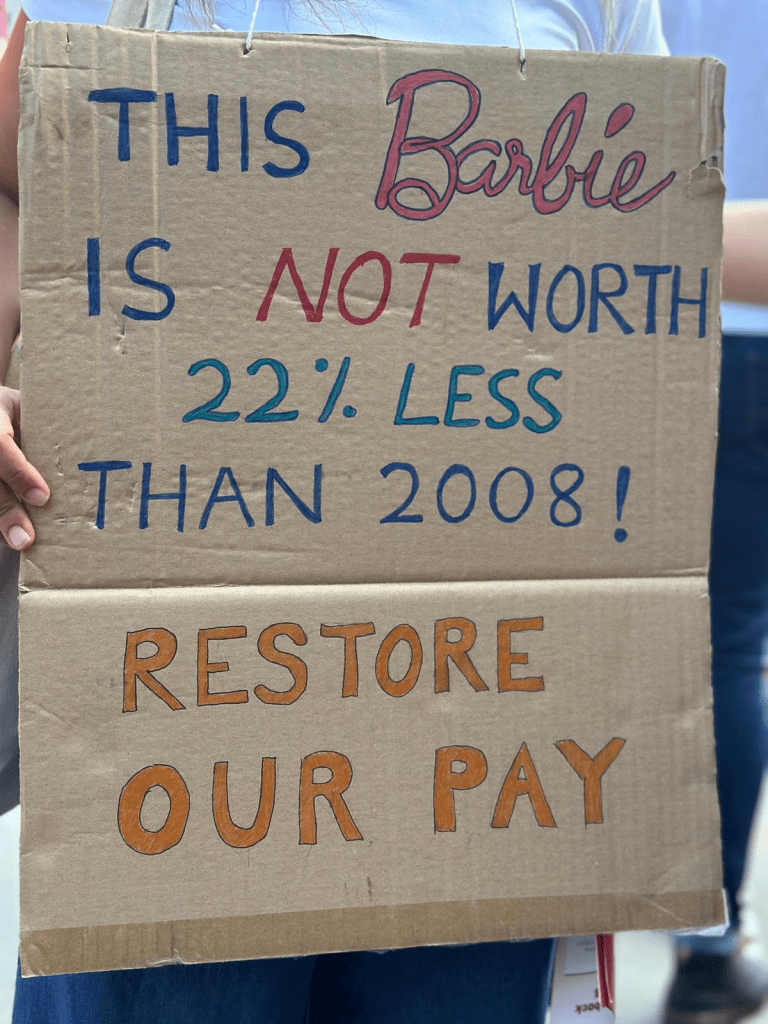 THIS Barbie
IS NOT WORTH
22% LESS
THAN 2008!
RESTORE
OUR PAY
back